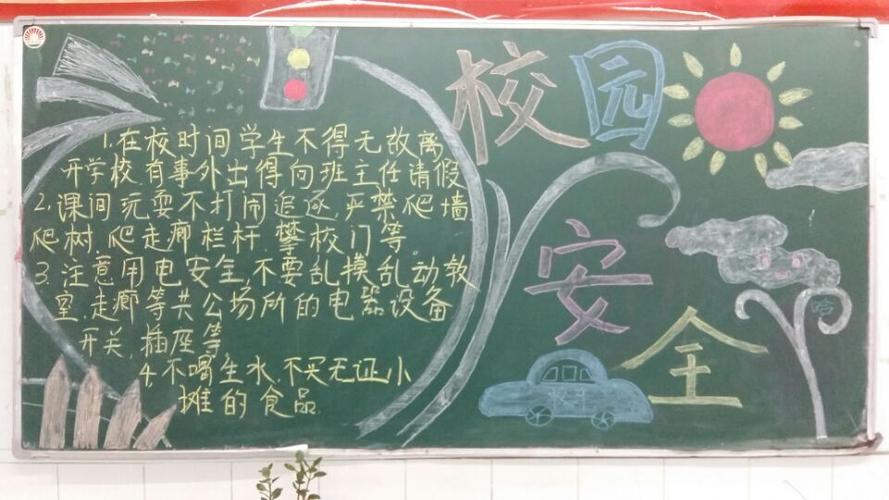 校园
安
全
1.在校时间学生不得无故离
开学校有事外出得向班主任请假
2.课间玩耍不打闹追逐严禁爬墙
爬树.爬走廊栏杆.攀校门等.
3.注意用电安全,不要乱摸乱动教
室.走廊等共公场所的电器设备
开关,插座等
4.不喝生水.不买无证小
摊的食品.